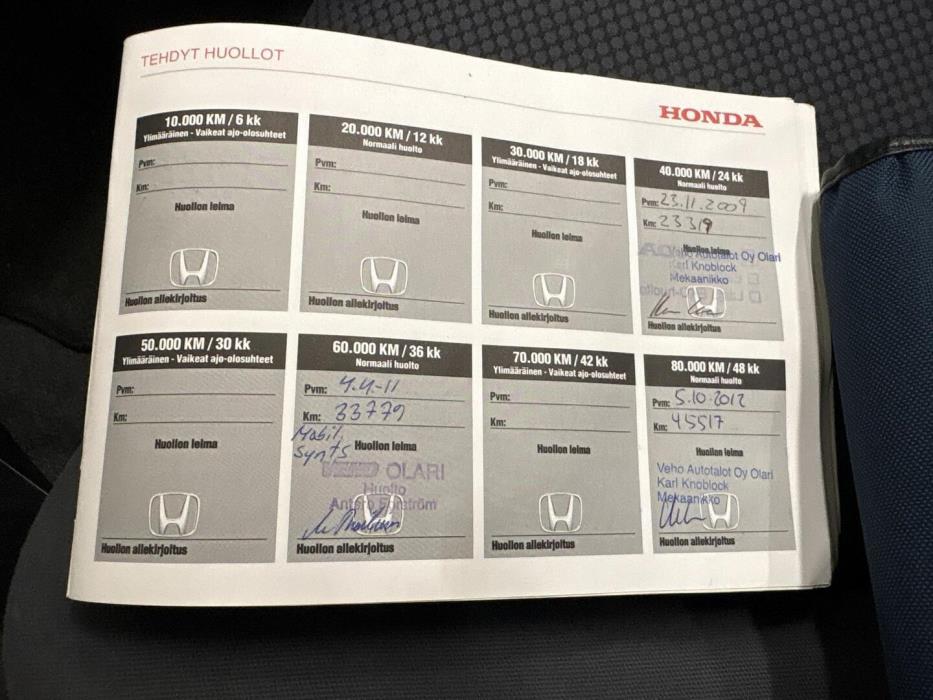 TEHDYT HUOLLOT
HONDA
10.000 KM / 6 kk
Ylimääräinen - Vaikeat ajo-olosuhteet
Pvm:
Km:
Huollon leima
Huollon allekirjoitus
20.000 KM / 12 kk
Normaali huolto
Pvm:
Km:
Huollon leima
Huollon allekirjoitus
30.000 KM / 18 kk
Ylimääräinen - Vaikeat ajo-olosuhteet
Pvm:
Km:
Huollon leima
Huollon allekirjoitus
40.000 KM / 24 kk
Normaali huolto
Pvm: 23.11.2009
Km: 23319
Huollon leima
Veho Autotalot Oy Olari
Karl Knoblock
Mekaanikko
Huollon allekirjoitus
50.000 KM / 30 kk
Ylimääräinen - Vaikeat ajo-olosuhteet
Pvm:
Km:
Huollon leima
Huollon allekirjoitus
60.000 KM / 36 kk
Normaali huolto
Pvm: 4.4-11
Km: 33779
Mobil
Synts Huollon leima
OLARI
Huolto
Antero Forström
Huollon allekirjoitus
70.000 KM / 42 kk
Ylimääräinen - Vaikeat ajo-olosuhteet
Pvm:
Km:
Huollon leima
Huollon allekirjoitus
80.000 KM / 48 kk
Normaali huolto
Pvm: 5.10.2012
Km: 45517
Huollon leima
Veho Autotalot Oy Olari
Karl Knoblock
Mekaanikko
Huollon allekirjoitus